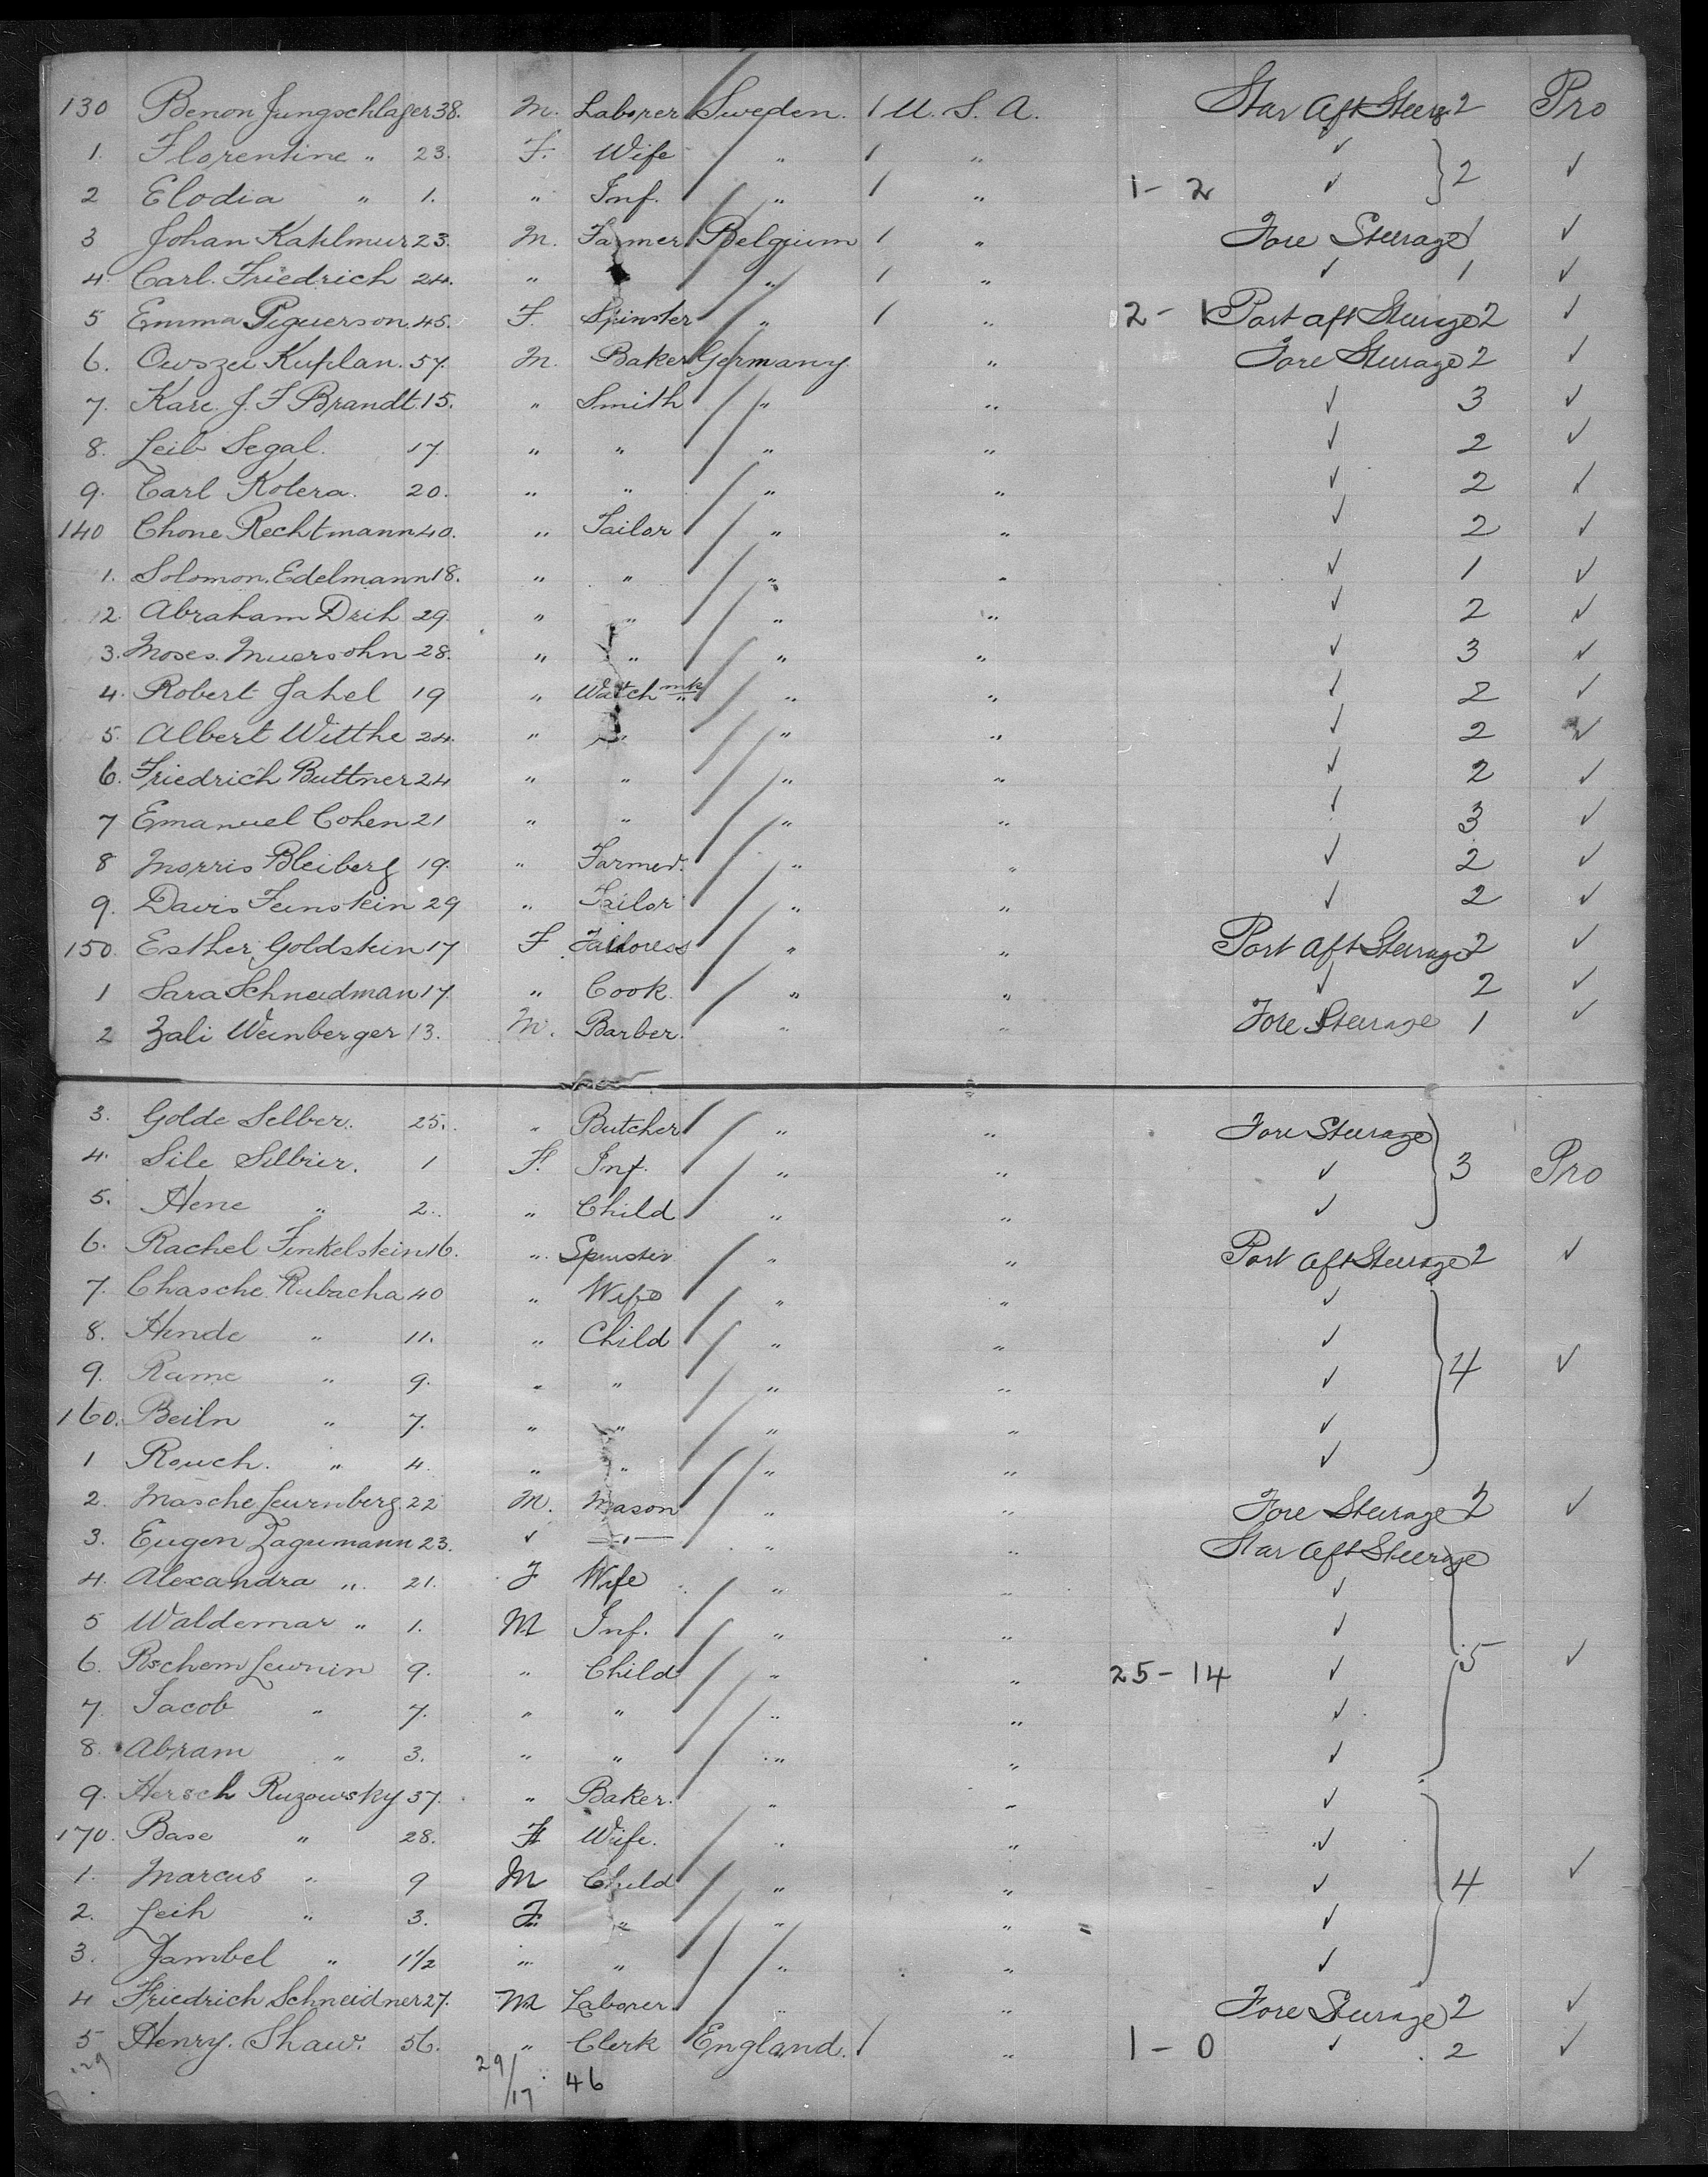 130 Benon Jungschlager 38. M. Laborer Sweden. 1 U. S. A. Star Aft Steerg 2 Pro
1. Florentine " 23. F. Wife " 1 " ✓ } 2 ✓
2 Elodia " 1. " Inf. " 1 " 1 - 2 ✓
3 Johan Kahlmur 23. M. Farmer Belgium 1 " Fore Steerage 1 ✓
4. Carl. Friedrich 24. " " 1 " ✓ 1 ✓
5 Emma Piguerson. 45. F. Spinster " 1 " 2 - 1 Port aft Steerage 2 ✓
6. Owszei Kuplan. 57. M. Baker Germany " Fore Steerage 2 ✓
7. Kare. J. F Brandt. 15. " Smith " " ✓ 3 ✓
8. Leib Segal. 17 " " " " ✓ 2 ✓
9. Carl Kolera. 20. " " " " ✓ 2 ✓
140 Chone Rechtmann 40. " Tailor " " ✓ 2 ✓
1. Solomon. Edelmann 18. " " " " ✓ 1 ✓
2. Abraham Drih 29. " " " " ✓ 2 ✓
3. Moses. Muersohn 28. " " " " ✓ 3 ✓
4. Robert Jahel 19 " Watch mk " " ✓ 2 ✓
5. Albert Witthe 24. " " " " ✓ 2 ✓
6. Friedrich Buttner 24 " " " " ✓ 2 ✓
7 Emanuel Cohen 21 " " " " ✓ 3 ✓
8 Morris Bleiberg 19. " Farmer. " " ✓ 2 ✓
9. Davis Feinstein 29 " Tailor " " ✓ 2 ✓
150. Esther Goldstein 17 F Tailoress " " Port Aft Steerage 2 ✓
1 Sara Schneidman 17. " Cook. " " ✓ 2 ✓
2 Zali Weinberger 13. M. Barber. " " Fore Steerage 1 ✓
3. Golde Selber. 25. " Butcher " " Fore Steerage } 3 Pro
4. Sile Silbrier. 1 F. Inf. " " ✓
5. Hene " 2. " Child " " ✓
6. Rachel Finkelstein 16. " Spinster " " Port aft Steerage 2 ✓
7. Chasche Rubacha 40 " Wife " " ✓ } 4 ✓
8. Hinde " 11. " Child " " ✓
9. Rume " 9. " " " " ✓
160. Beiln " 7. " " " " ✓
1 Rouch. " 4. " " " " ✓
2. Masche Leurnberg 22 M. Mason " " Fore Steerage 2 ✓
3. Eugen Zagumann 23. ✓ —"— " " Star Aft Steerage
4. Alexandra " 21. F Wife " " ✓
5 Waldemar " 1. M Inf. " " ✓ } 5 ✓
6. Rschem Lewnin 9. " Child " " 25 - 14 ✓
7. Jacob " 7. " " " " ✓
8. Abram " 3. " " " " ✓
9. Hersch Ruzowsky 37. " Baker. " " ✓ } 4 ✓
170. Base " 28. F Wife. " " ✓
1. Marcus " 9 M Child " " ✓
2. Leih " 3. F. " " " ✓
3. Jambel " 1 1/2 " " " " ✓
4 Friedrich Schneidner 27. M Laborer. " " Fore Steerage 2 ✓
5 Henry. Shaw. 56. " Clerk England. 1 " 1 - 0 ✓ 2 ✓
29 29/17 46